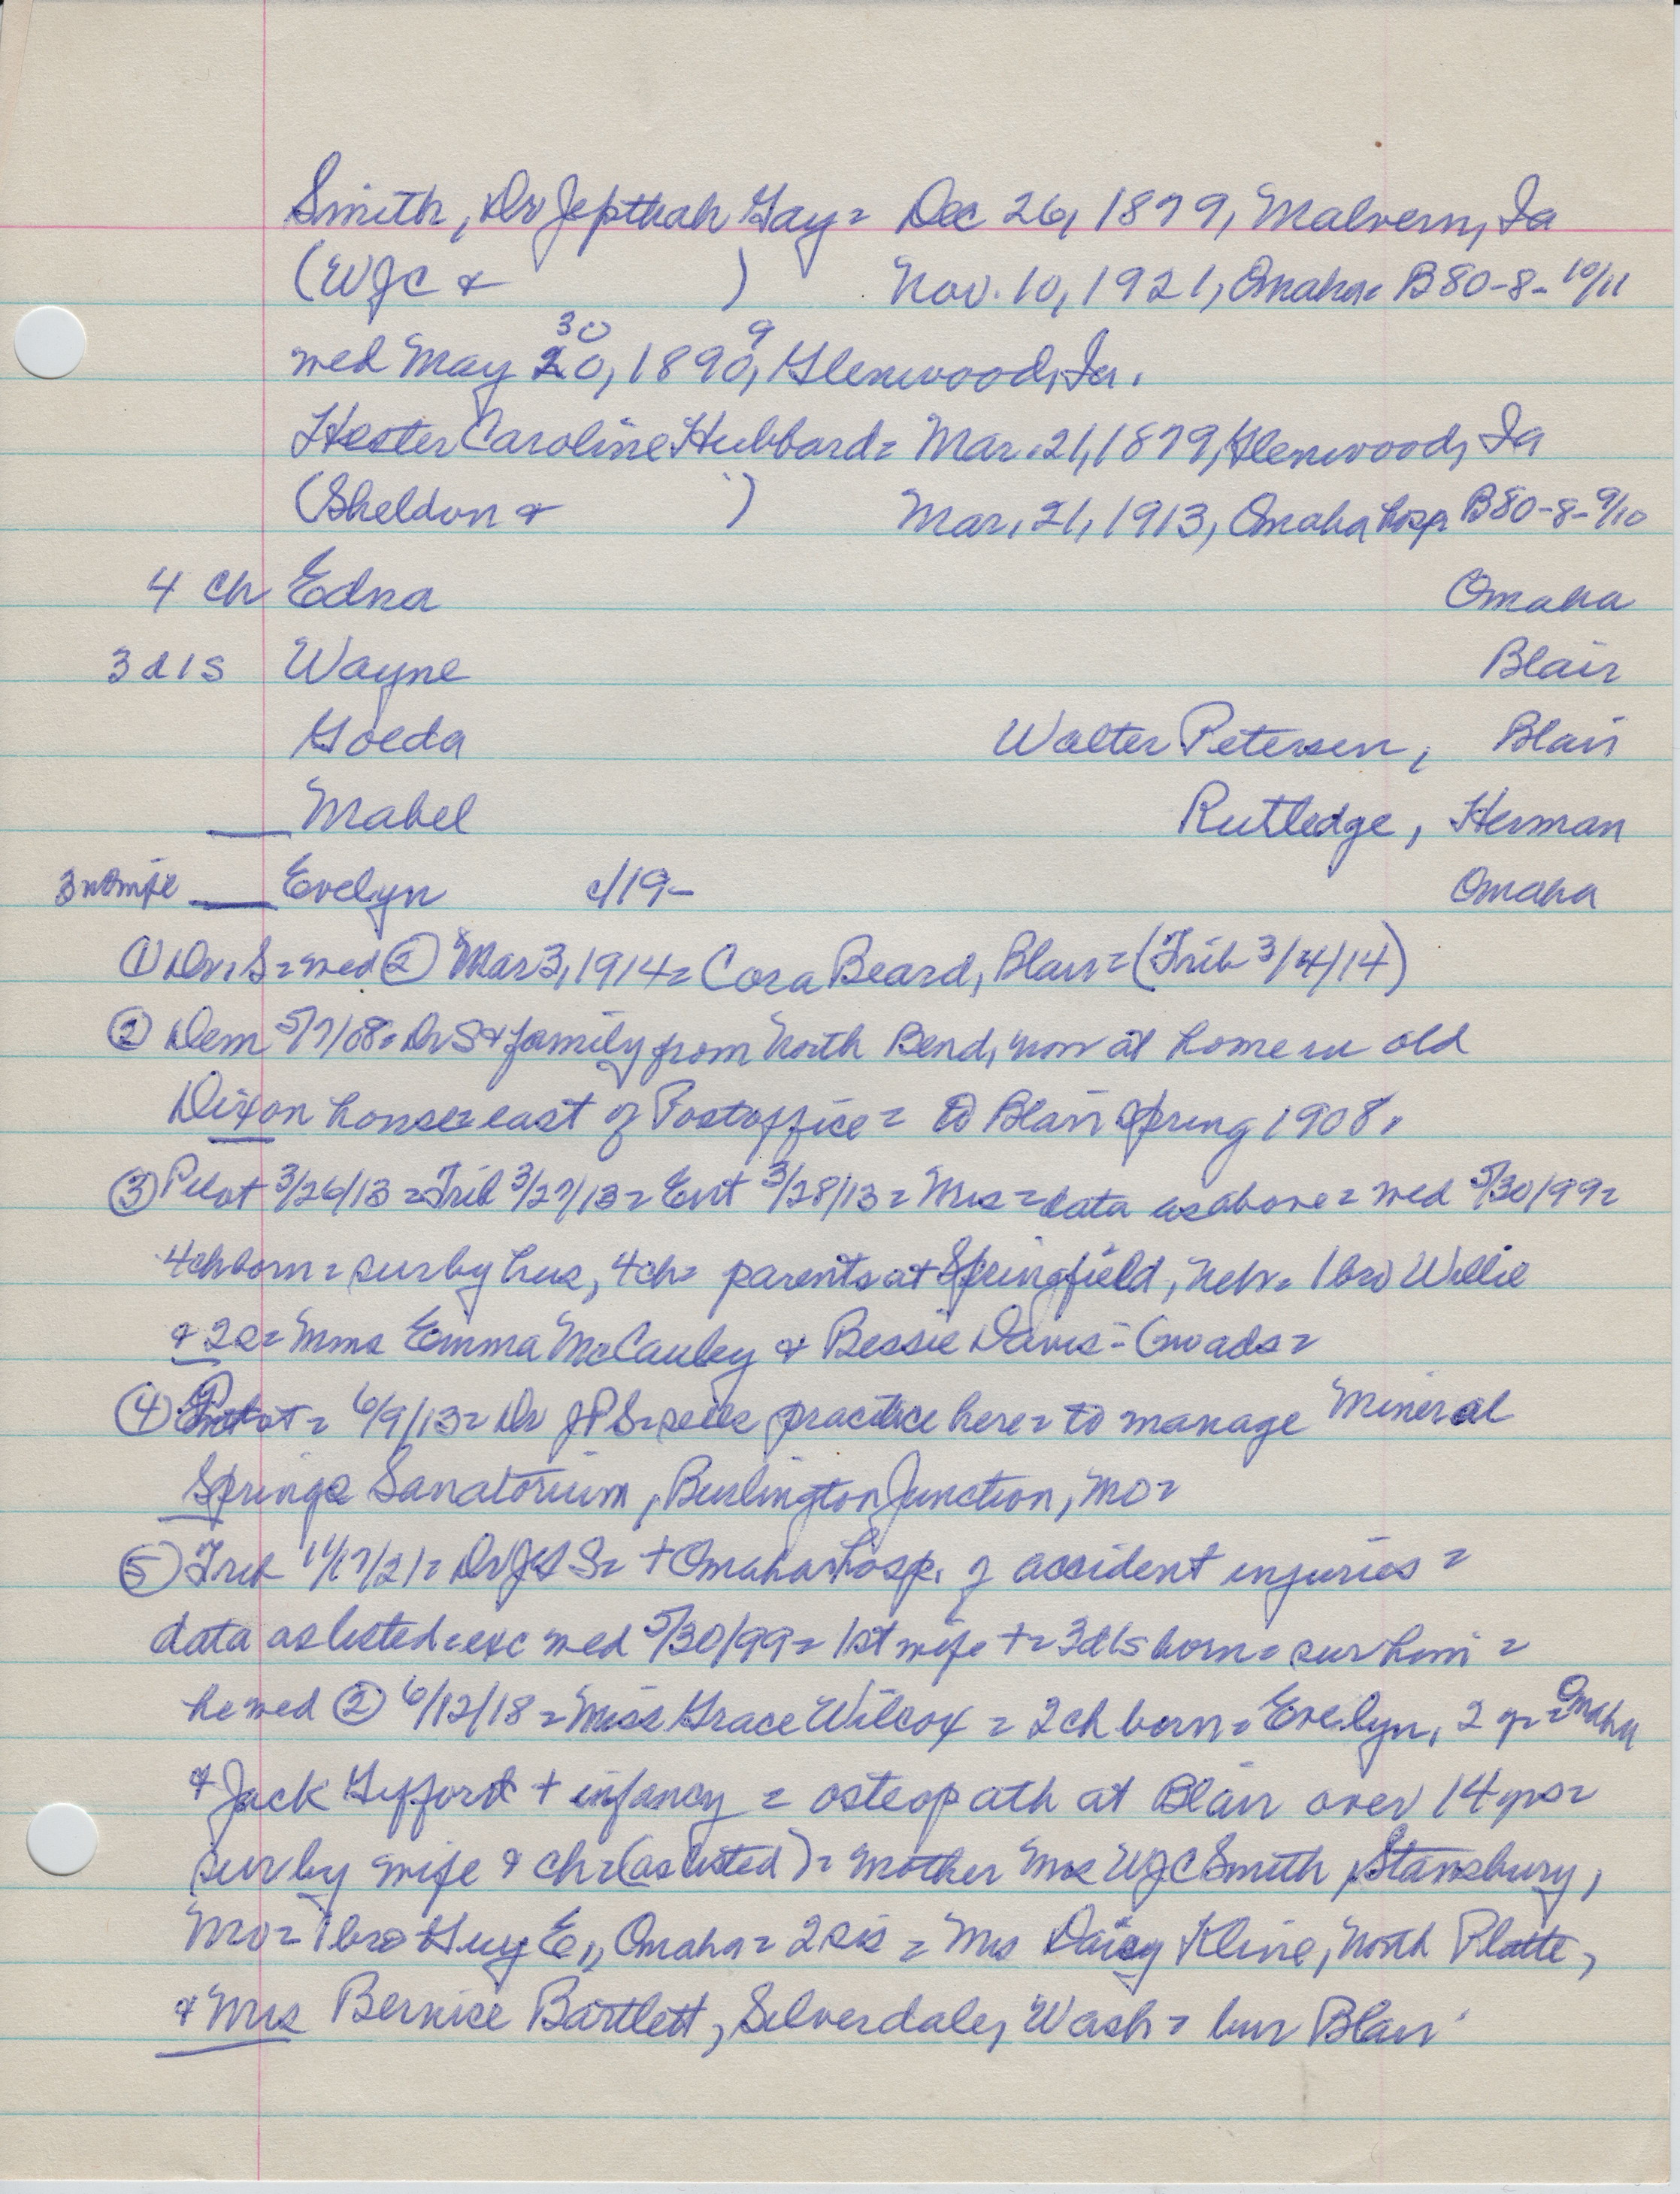 Smith, Dr Jepthah Gay = Dec 26, 1879, Malvern, Ia
(WJC & ) Nov. 10, 1921, Omaha = B80-8-10/11
30 9
wed May 20, 1890, Glenwood, Ia.
Hester Caroline Hubbard = Mar. 21, 1879, Glenwood, Ia
(Sheldon & ) Mar. 21, 1913, Omaha hosp B80-8-9/10
4 ch Edna Omaha
3 d 1 s Wayne Blair
Golda Walter Petersen, Blair
Mabel Rutledge, Herman
wife Evelyn c/19- Omaha
① Dr. S = wed ② Mar 3, 1914 = Cora Beard, Blair = (Trib 3/4/14)
② Dem 5/7/08 = Dr S & family from North Bend, now at home in old
Dixon house = east of Postoffice = to Blair Spring 1908.
③ Pilot 3/26/13 = Trib 3/27/13 = Ent 3/28/13 = Mrs = data as above = wed 5/30/99 =
4 ch born = sur by hus, 4 ch = parents at Springfield, Nebr = 1 bro Willie
& 2 s = Mms Emma McCauley & Bessie Davis =
④ Pilot = 6/9/13 = Dr JPS = sells practice here = to manage Mineral
Springs Sanatorium, Burlington Junction, Mo =
⑤ Trib 11/17/21 = Dr JGS = + Omaha hosp. of accident injuries =
data as listed = exc wed 5/30/99 = 1st wife + = 3 d 1 s born = sur him =
he wed ② 6/12/18 = Miss Grace Wilcox = 2 ch born = Evelyn, 2 yr = Omaha
& Jack Gifford + infancy = osteopath at Blair over 14 yrs =
sur by wife & ch = (as listed) = mother Mrs WJC Smith, Stansbury,
Mo = 1 bro Guy E., Omaha = 2 sis = Mrs Daisy Kline, North Platte,
& Mrs Bernice Bartlett, Silverdale, Wash = bur Blair